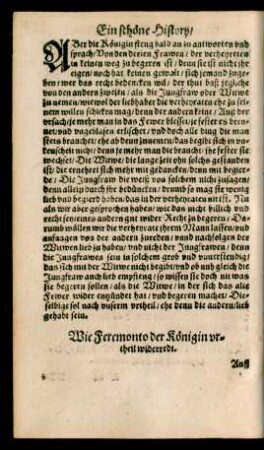 Ein schöne History/
ABer die Königin fieng bald an zu antworten vnd
sprach/ Von den dreien Frawen/ der verheyreten
in keinen weg zu begeren ist/ denn sie ist nicht ihr
eigen/ noch hat keinen gewalt/ sich jemand zuge-
ben/ wer das recht bedencken wil/ der thut baß
von den andern zweien/ als die Jungfraw oder Witwe
zu nemen/ wiewol der liebhaber die verheyraten ehe zu sei-
nem willen
vrsach/ je mehr man in das Fewr bleset/ je fester es bren-
net/ vnd
stera brauchet/ ehe abbrunnemen/ das begibt sich in va-
deuscheit nicht/ denn je mehr man die braucht/ jhe fester sie
wechset/ Die Witwe/ die lange zeit ohn solchs gestanden
ist/ die ernewrt sich mehr mit gedancken/ denn mit begir-
de/ Die Jungfraw die weiß von solchem nicht zusagen/
denn allein durch ihr bedüncken/ drumb so mag sie wenig
lieb vnd begierd haben/ das in der verheyraten nit ist. Nu
als wir aber gesprochen haben/ wie das nicht billich vnd
recht sey/ eines andern gut wider Recht zu begeren/ Da-
rumb wöllen wir die verheyrate ihrem Mann lassen/ vnd
anfangen von der andern zureden/ vnd nachfolgen der
Witwen lieb zu haben/ vnd nicht der Jungfrawen/ denn
die Jungfrawen sein in solchem grob vnd vnuerstendig/
das sich mit der Witwe nicht begibt/ vnd ob vnb gleich die
Jungfraw auch lieb empfieng/ so wissen sie doch nit was
sie begeren sollen/ als die Witwe/ in der sich das alte
Fewer wider empfindet hat/ vnd begeren machet/ Die-
selbige sol nach vnserm vrtheil/ ehe denn die andern/ lieb
gehabt sein.
Wie Feremonto der Königin vr-
theil widerredt.
Auff